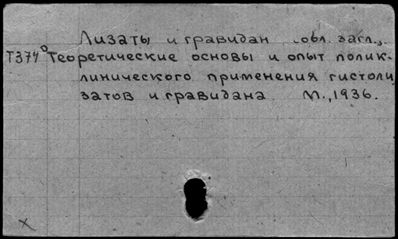 Лизаты и гравидан обл. загл.
Т374° Теоретические основы и опыт полик-
линического применения гистоли
затов и гравидана. М., 1936.
х